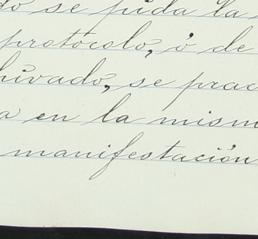 do se pida la
protócolo, ó de
hivado, se prac
a en la mism
manifestación